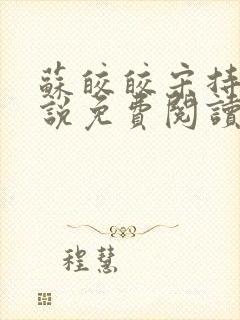 蘇皎皎宋持
說免費閱讀
程慧